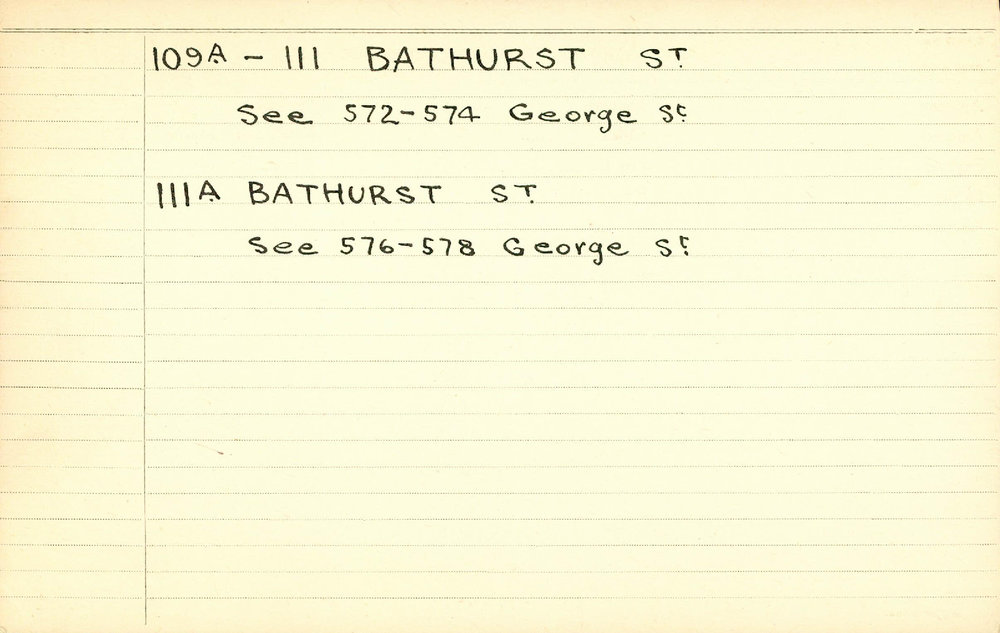 109A - 111 BATHURST ST.
See 572-574 George St.
111A BATHURST ST.
See 576-578 George St.